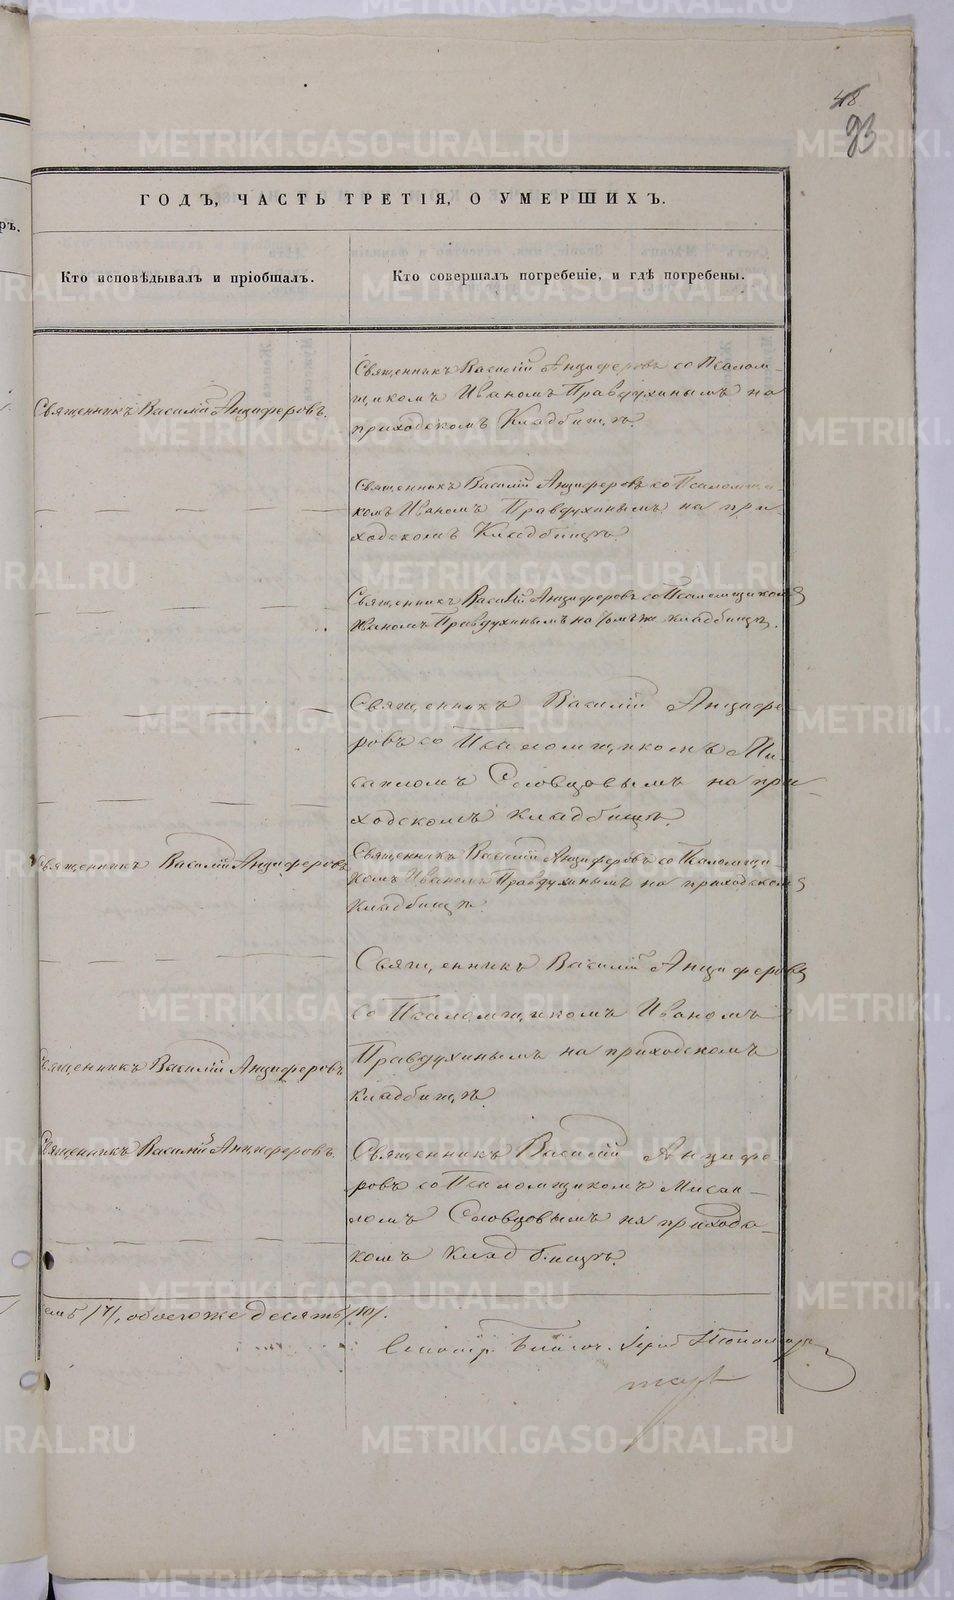 48
93
ГОДЪ, ЧАСТЬ ТРЕТІЯ, О УМЕРШИХЪ.
Кто исповѣдывалъ и пріобщалъ.
Кто совершалъ погребеніе, и гдѣ погребены.
Священникъ Василій Анциферовъ.
Священникъ Василій Анциферовъ со Псалом-
щикомъ Иваномъ Правдухинымъ на
приходскомъ Кладбищѣ.
Священникъ Василій Анциферовъ со Псаломщи-
комъ Иваномъ Правдухинымъ на при
ходскомъ Кладбищѣ.
Священникъ Василій Анциферовъ со Псаломщикомъ
Иваномъ Правдухинымъ на томъ же кладбищѣ.
Священникъ Василій Анцифе
ровъ со Псаломщикомъ Ми-
саиломъ Словцовымъ на при
ходскомъ кладбищѣ.
Священникъ Василій Анциферовъ
Священникъ Василій Анциферовъ со Псаломщи
комъ Иваномъ Правдухинымъ на приходскомъ
Кладбищѣ.
Священникъ Василій Анциферовъ
со Псаломщикомъ Иваномъ
Правдухинымъ на приходскомъ
кладбищѣ.
Священникъ Василій Анциферовъ
Священникъ Василій Анциферовъ.
Священникъ Василій Анцифе-
ровъ со Псаломщикомъ Мисаи-
ломъ Словцовымъ на приходс-
комъ Кладбищѣ.
обоего же десять /10/.
METRIKI.GASO-URAL.RU